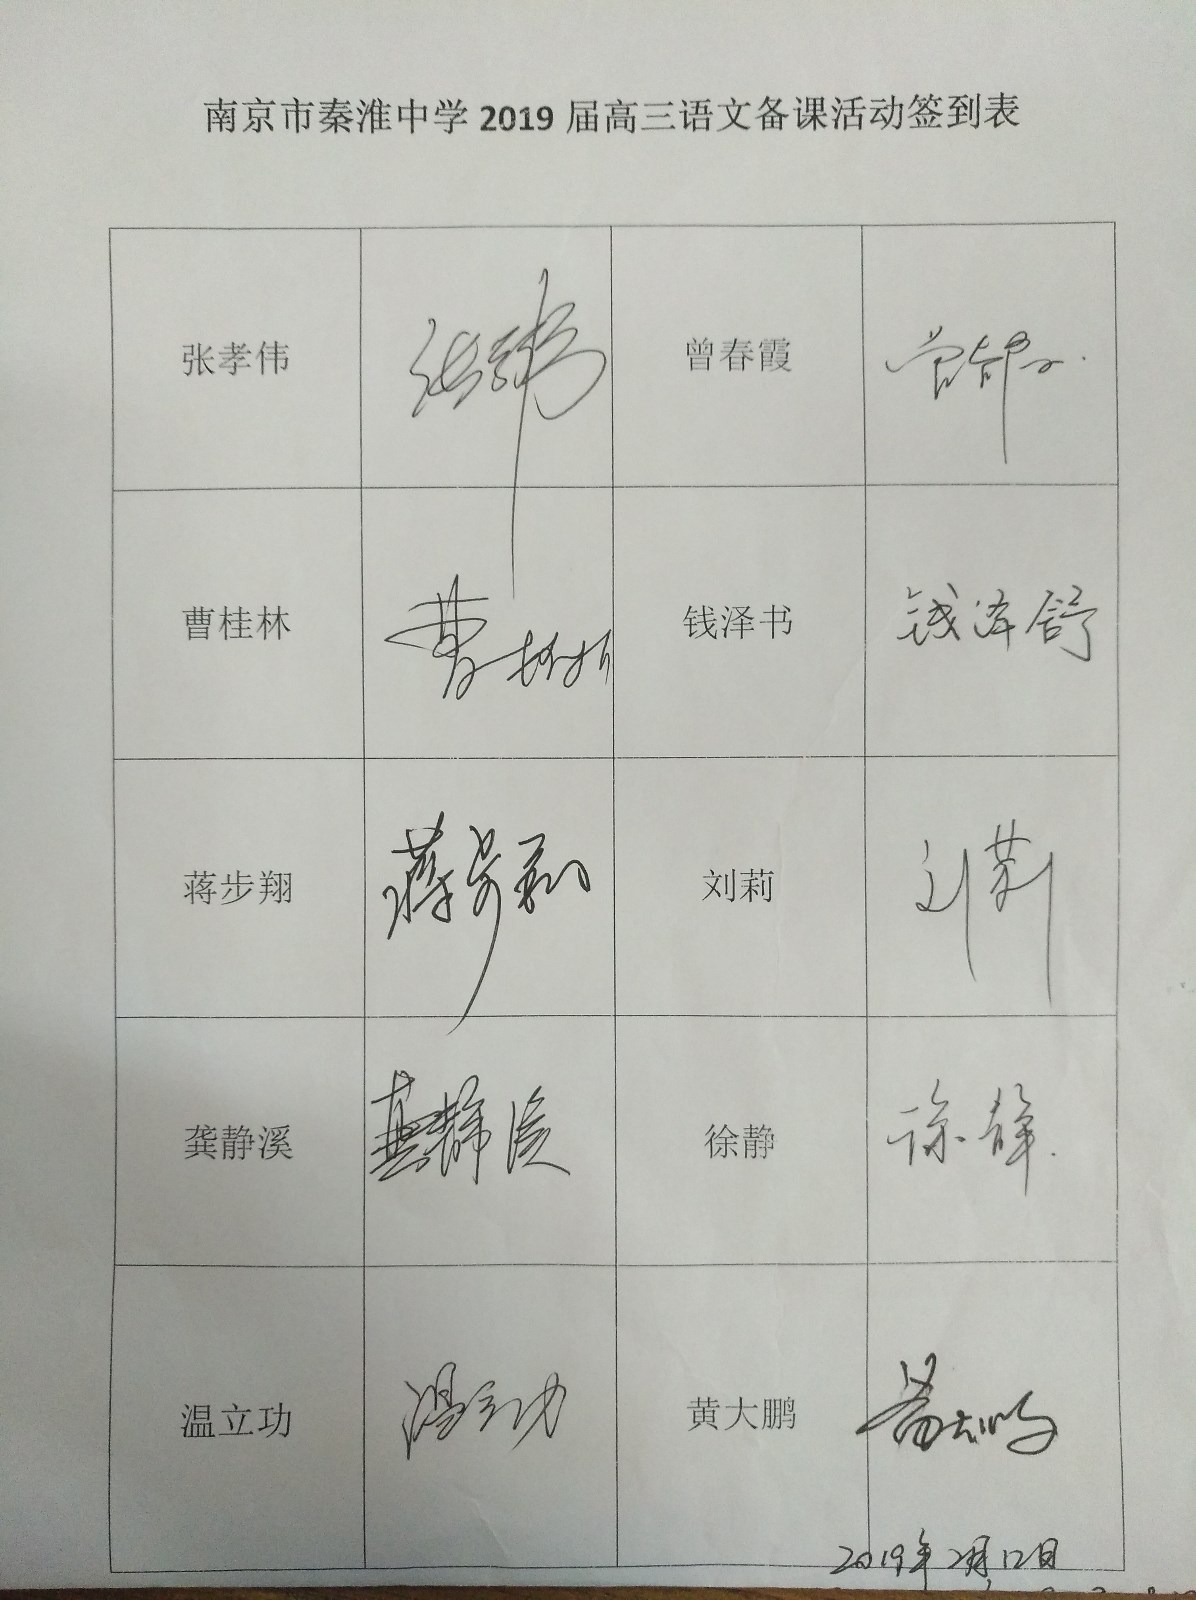 南京市秦淮中学 2019 届高三语文备课活动签到表
张孝伟 张孝伟 曾春霞 曾春霞
曹桂林 曹桂林 钱泽书 钱泽舒
蒋步翔 蒋步翔 刘莉 刘莉
龚静溪 龚静溪 徐静 徐静
温立功 温立功 黄大鹏 黄大鹏
2019年2月12日